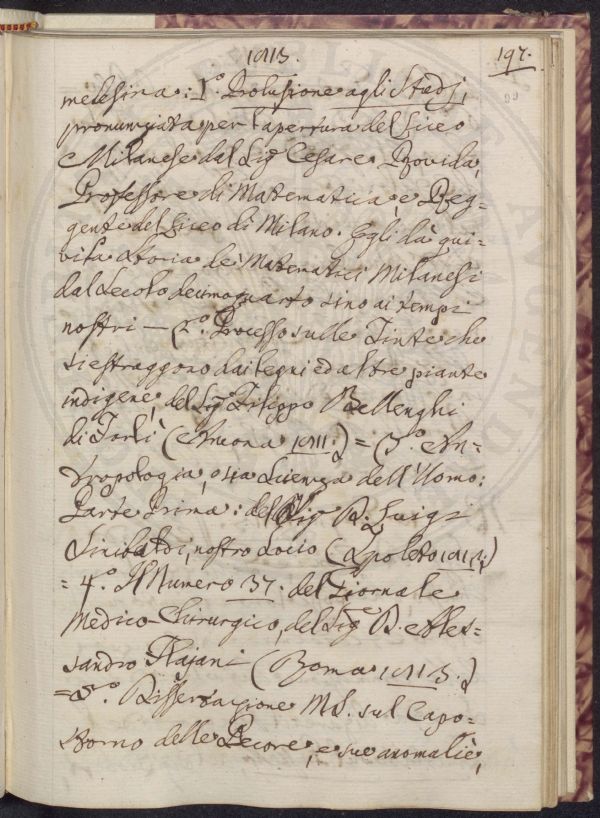 1813.
197.
medesima: 1.° Prolusione agli Studj,
pronunziata per l'apertura del Liceo
Milanese dal Sig.r Cesare Rovida,
Professore di Matematica, e Reg-
gente del Liceo di Milano. Egli dà qui-
vi la Storia de' Matematici Milanesi
dal Secolo decimoquarto sino ai tempi
nostri — 2.° Processo sulle Tinte che
si estraggono dai legni ed altre piante
indigene, del Sig.r Filippo Bellenghi
di Forlì (Ancona 1811.) = 3.° An-
tropologia, o sia Scienza dell'Uomo:
Parte Prima: del Sig.r D. Luigi
Sinibaldi, nostro Socio (Spoleto 1813.)
= 4.° Il Numero 37. del Giornale
Medico-Chirurgico, del Sig.r D. Ales-
sandro Flajani (Roma 1813.)
= 5.° Dissertazione MS. sul Capo-
storno delle Pecore, e sue anomalie,